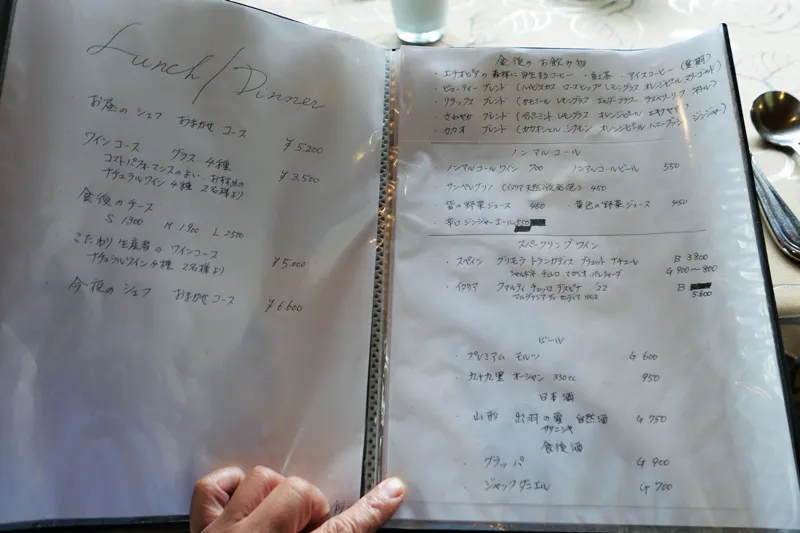 Lunch/Dinner
お昼のシェフ おまかせ コース ¥5,200
ワインコース グラス 4種 ¥3,500
コストパフォーマンスのよい、おすすめの
ナチュラルワイン 4種 2名様より
食後のチーズ
S 1300 M 1900 L 2500
こだわり 生産者の ワインコース ¥5,000
ナチュラルワイン 4種 2名様より
今夜の シェフ おまかせ コース ¥6,600
食後の お飲み物
・エチオピアの森林に自生するコーヒー ・紅茶 ・アイスコーヒー (夏期)
・ビューティー ブレンド (ハイビスカス ローズヒップ レモングラス オレンジピール マリーゴールド)
・リラックス ブレンド (カモミール レモングラス エルダーフラワー ラズベリーリーフ ネトル)
・さわやか ブレンド (ペパーミント レモングラス オレンジピール エキナセア)
・カカオ ブレンド (カカオシェル シナモン オレンジピール ハニーブッシュ ジンジャー)
ノンアルコール
ノンアルコールワイン 700 ノンアルコールビール 550
サンペレグリノ (イタリア天然微発泡) 450
・畑の野菜ジュース 450 ・黄色の野菜ジュース 450
・辛口 ジンジャーエール 550
スパークリングワイン
・スペイン プリモラ トランカディス ブリュット ナチューレ B 3.800
シャルドネ チャレロ マカベオ パレリャーダ G 900〜800
・イタリア '22 B
5.600
ビール
・プレミアム モルツ G 600
・九十九里 オーシャン 330cc 950
日本酒
・山形 出羽の雫 自然酒 G 750
ササニシキ
食後酒
・グラッパ G 900
・ジャックダニエル G 700